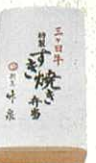 三ヶ日牛
特製
すき焼き
弁当